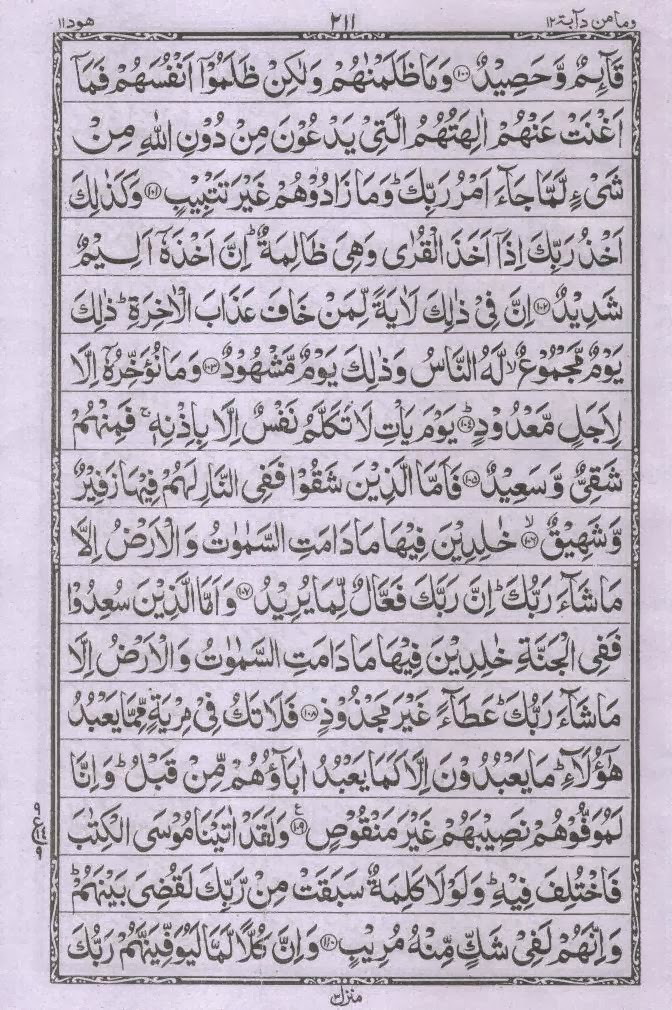 وما من دآبة ١٢ ٢١١ هود ١١
قَآئِمٌ وَّحَصِيْدٌ ﴿۱۰۰﴾ وَمَا ظَلَمْنٰهُمْ وَلٰكِنْ ظَلَمُوْۤا اَنْفُسَهُمْ فَمَاۤ
اَغْنَتْ عَنْهُمْ اٰلِهَتُهُمُ الَّتِيْ يَدْعُوْنَ مِنْ دُوْنِ اللّٰهِ مِنْ
شَيْءٍ لَّمَّا جَآءَ اَمْرُ رَبِّكَ ؕ وَمَا زَادُوْهُمْ غَيْرَ تَتْبِيْبٍ ﴿۱۰۱﴾ وَكَذٰلِكَ
اَخْذُ رَبِّكَ اِذَاۤ اَخَذَ الْقُرٰى وَهِيَ ظَالِمَةٌ ؕ اِنَّ اَخْذَهٗۤ اَلِيْمٌ
شَدِيْدٌ ﴿۱۰۲﴾ اِنَّ فِيْ ذٰلِكَ لَاٰيَةً لِّمَنْ خَافَ عَذَابَ الْاٰخِرَةِ ؕ ذٰلِكَ
يَوْمٌ مَّجْمُوْعٌ ۙ لَّهُ النَّاسُ وَذٰلِكَ يَوْمٌ مَّشْهُوْدٌ ﴿۱۰۳﴾ وَمَا نُؤَخِّرُهٗۤ اِلَّا
لِاَجَلٍ مَّعْدُوْدٍ ؕ ﴿۱۰۴﴾ يَوْمَ يَاْتِ لَا تَكَلَّمُ نَفْسٌ اِلَّا بِاِذْنِهٖ ۚ فَمِنْهُمْ
شَقِيٌّ وَّسَعِيْدٌ ﴿۱۰۵﴾ فَاَمَّا الَّذِيْنَ شَقُوْا فَفِي النَّارِ لَهُمْ فِيْهَا زَفِيْرٌ
وَّشَهِيْقٌ ۙ ﴿۱۰۶﴾ خٰلِدِيْنَ فِيْهَا مَا دَامَتِ السَّمٰوٰتُ وَالْاَرْضُ اِلَّا
مَا شَآءَ رَبُّكَ ؕ اِنَّ رَبَّكَ فَعَّالٌ لِّمَا يُرِيْدُ ﴿۱۰۷﴾ وَاَمَّا الَّذِيْنَ سُعِدُوْا
فَفِي الْجَنَّةِ خٰلِدِيْنَ فِيْهَا مَا دَامَتِ السَّمٰوٰتُ وَالْاَرْضُ اِلَّا
مَا شَآءَ رَبُّكَ ؕ عَطَآءً غَيْرَ مَجْذُوْذٍ ﴿۱۰۸﴾ فَلَا تَكُ فِيْ مِرْيَةٍ مِّمَّا يَعْبُدُ
هٰۤؤُلَآءِ ؕ مَا يَعْبُدُوْنَ اِلَّا كَمَا يَعْبُدُ اٰبَآؤُهُمْ مِّنْ قَبْلُ ؕ وَاِنَّا
لَمُوَفُّوْهُمْ نَصِيْبَهُمْ غَيْرَ مَنْقُوْصٍ ﴿۱۰۹﴾ ع وَلَقَدْ اٰتَيْنَا مُوْسَى الْكِتٰبَ
فَاخْتُلِفَ فِيْهِ ؕ وَلَوْلَا كَلِمَةٌ سَبَقَتْ مِنْ رَّبِّكَ لَقُضِيَ بَيْنَهُمْ ؕ
وَاِنَّهُمْ لَفِيْ شَكٍّ مِّنْهُ مُرِيْبٍ ﴿۱۱۰﴾ وَاِنَّ كُلًّا لَّمَّا لَيُوَفِّيَنَّهُمْ رَبُّكَ
منزل ٣